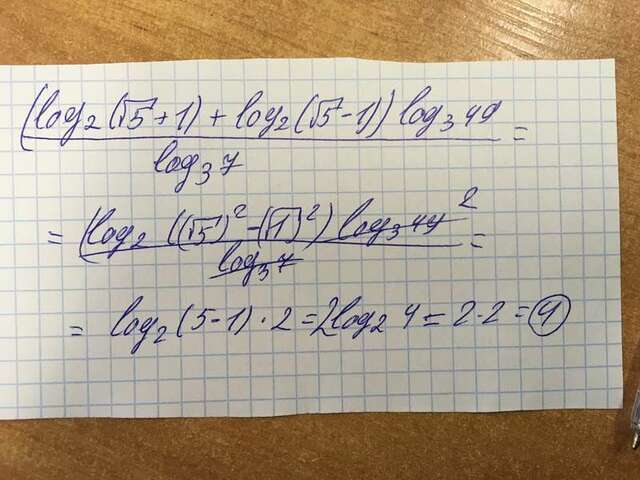 (log₂(√5+1)+log₂(√5-1))log₃49 =
log₃7
= (log₂((√5)²-(√1)²)log₃49 2 =
log₃7
= log₂(5-1)·2=2log₂4=2·2=4